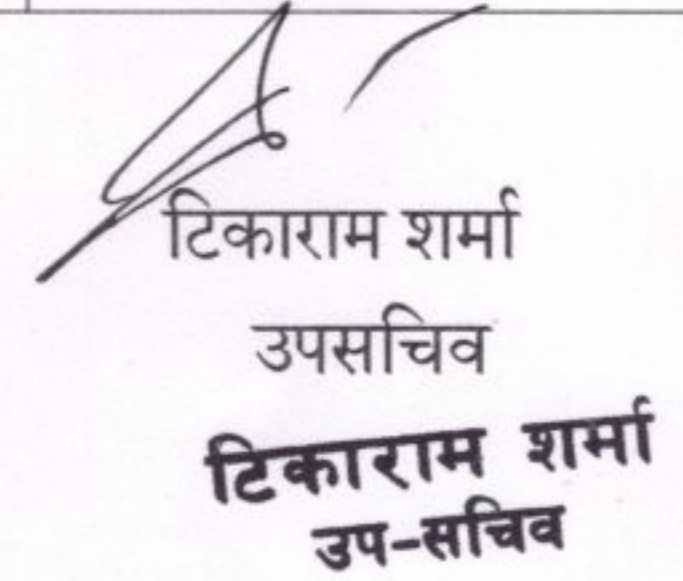 टिकाराम शर्मा
उपसचिव
टिकाराम शर्मा
उप-सचिव